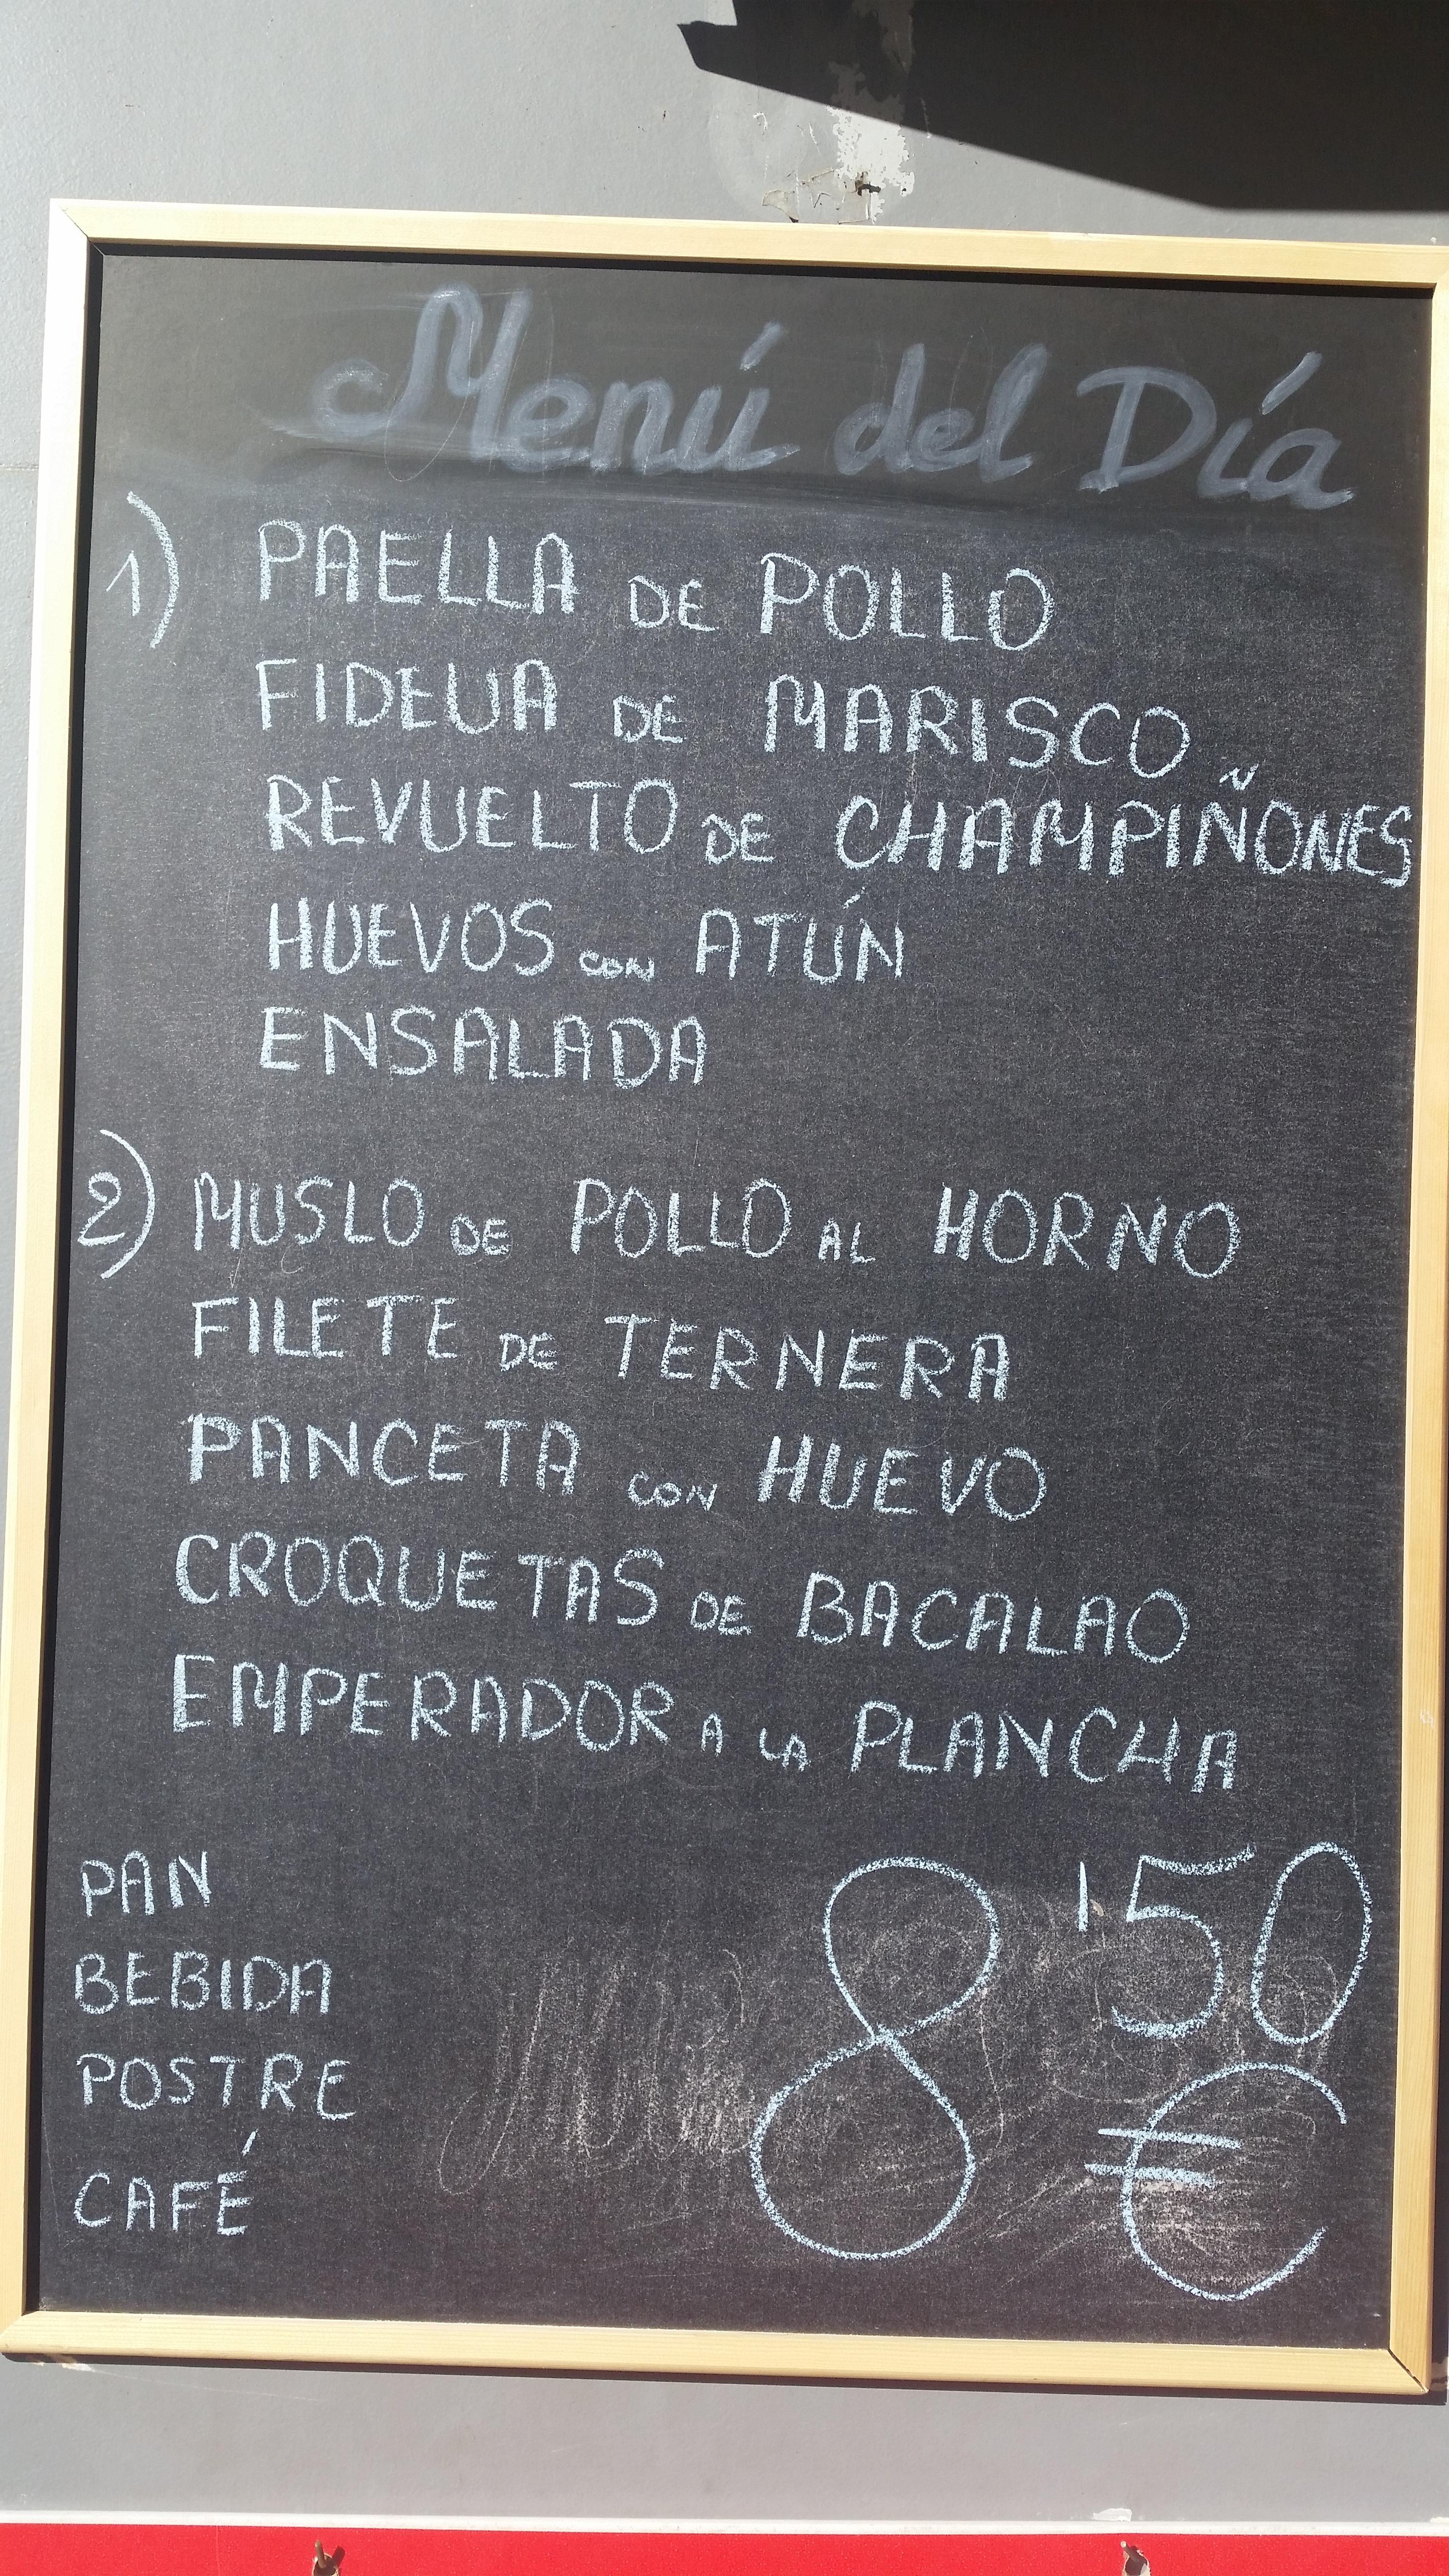 Menú del Día
1) PAELLA DE POLLO
FIDEUA DE MARISCO
REVUELTO DE CHAMPIÑONES
HUEVOS CON ATÚN
ENSALADA
2) MUSLO DE POLLO AL HORNO
FILETE DE TERNERA
PANCETA CON HUEVO
CROQUETAS DE BACALAO
EMPERADOR A LA PLANCHA
PAN
BEBIDA
POSTRE
CAFÉ
8'50
€